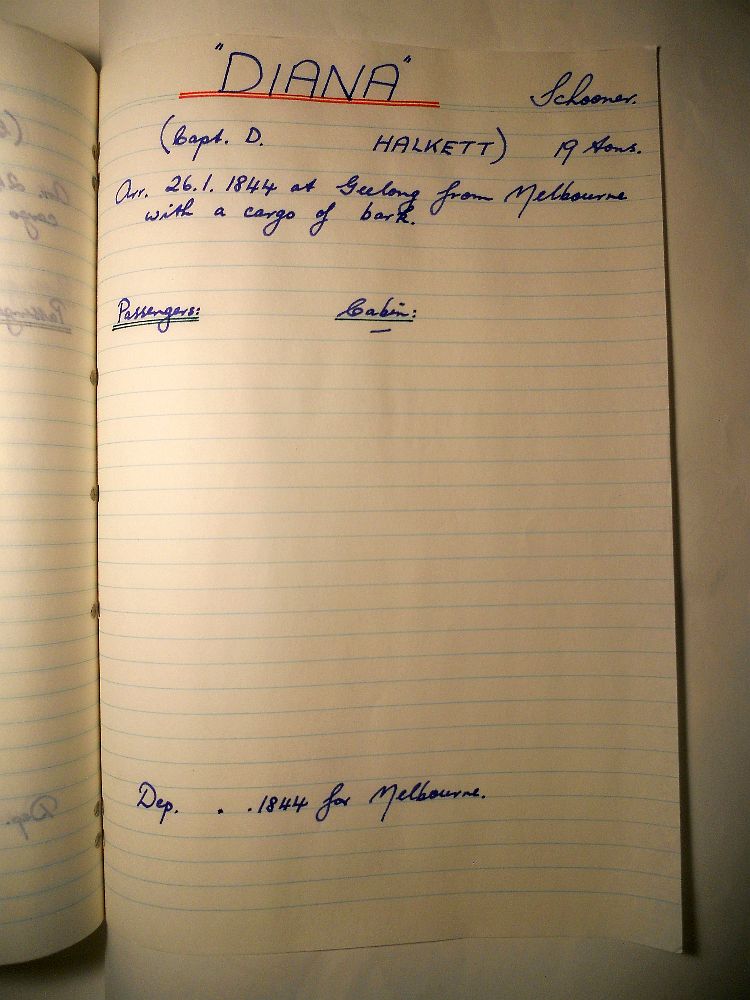 "DIANA" Schooner.
(Capt. D. HALKETT) 19 tons.
Arr. 26.1.1844 at Geelong from Melbourne
with a cargo of bark.
Passengers: Cabin:
—
Dep. . .1844 for Melbourne.